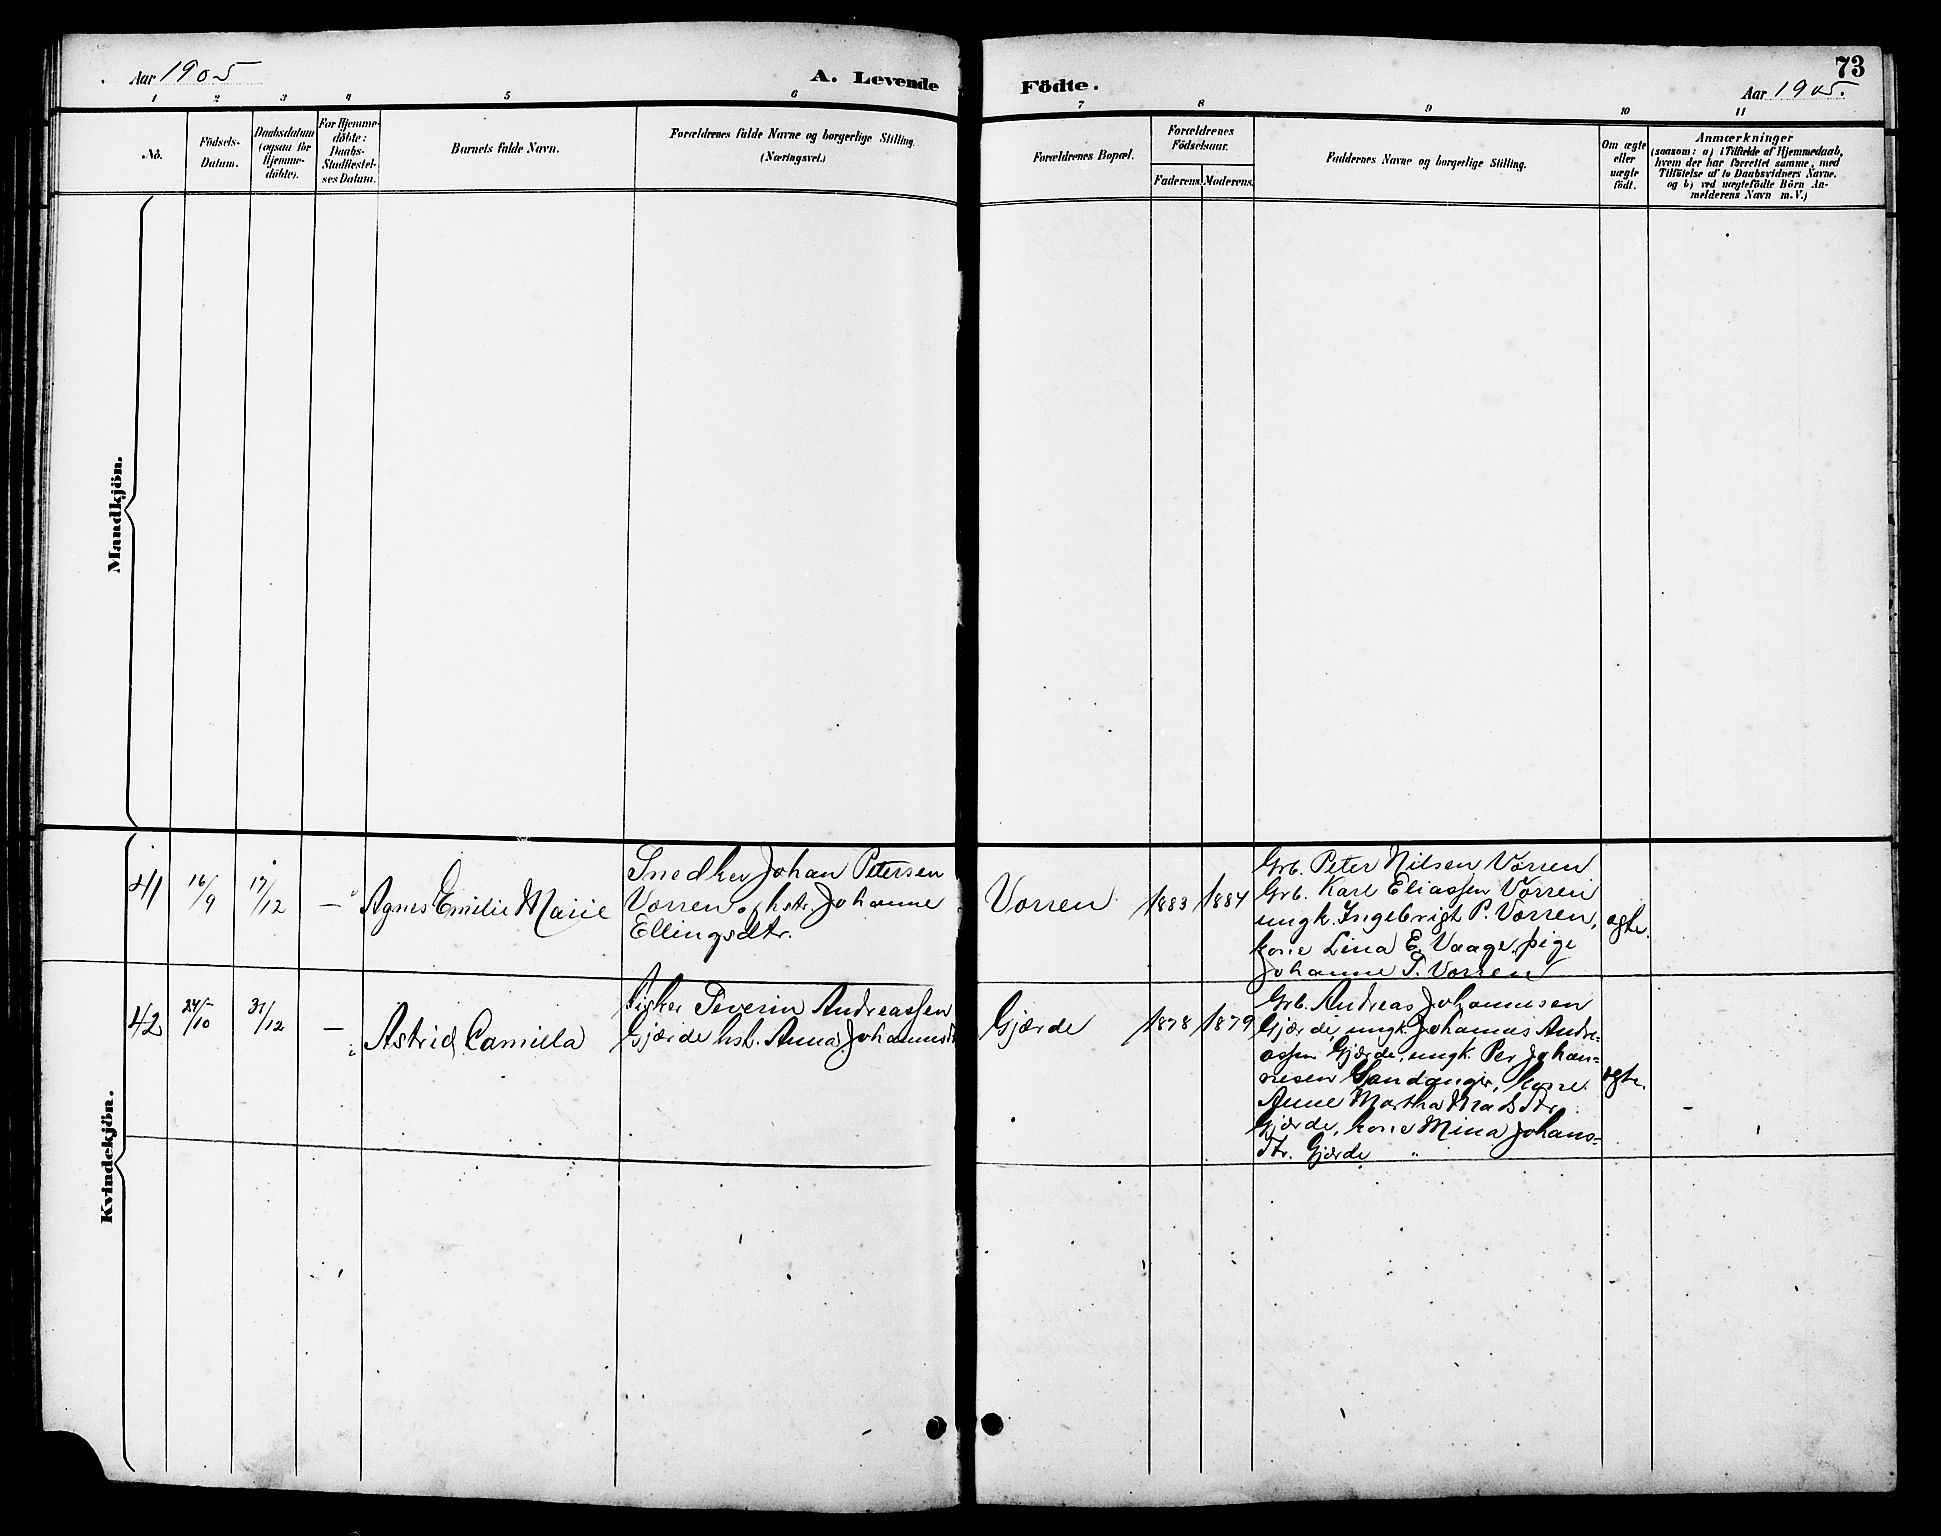 Aar 1905
A. Levende
Födte.
73
Aar 1905.
1 2 3 4 5 6 7 8 9 10 11
No.
Födsels-
Datum.
Daabsdatum
(ogsaa for
Hjemme-
döbte).
For Hjemme-
döbte:
Daabs-
Stadfæstel-
ses Datum.
Barnets fulde Navn.
Forældrenes fulde Navne og borgerlige Stilling.
(Næringsvei.)
Forældrenes Bopæl.
Forældrenes
Födselsaar.
Faderens. Moderens.
Faddernes Navne og borgerlige Stilling.
Om ægte
eller
uægte
født.
Anmærkninger
(saasom: a) i Tilfælde af Hjemmedaab,
hvem der har forrettet samme, med
Tilföielse af to Daabsvidners Navne.
og b) ved uægtefödte Börn An-
melderens Navn m.V.)
Mandkjön.
Kvindekjön.
41
16/9
17/12
—
Agnes Emilie Marie
Snedker Johan Petersen
Vorren og hstr. Johanne
Ellingsdtr.
Vorren
1883
1884
Grb. Peter Nilsen Vorren
Grb. Karl Eliassen Vorren
ungk. Ingebrigt P. Vorren,
kone Lina E. Vaage, pige
Johanne P. Vorren
ægte.
42
24/10
31/12
—
Astrid Camilla
Fisker Severin Andreassen
Gjærde hst. Anna Johannsdt
Gjærde
1878
1879
Grb. Andreas Johannesen
Gjærde, ungk. Johannes Andre-
assen Gjærde, ungk. Per Johan-
nesen Sandanger, kone
Anne Martha Madsdtr.
Gjærde, kone Mina Johans-
dtr. Gjærde
ægte.